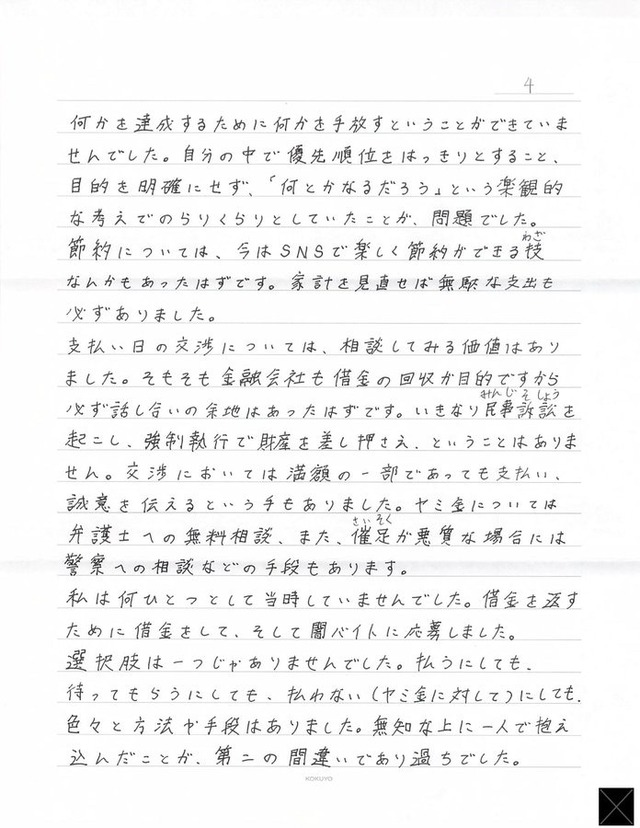 4
何かを達成するために何かを手放すということができていま
せんでした。自分の中で優先順位をはっきりとすること、
目的を明確にせず、「何とかなるだろう」という楽観的
な考えでのらりくらりとしていたことが、問題でした。
節約については、今はSNSで楽しく節約ができる技
わざ
なんかもあったはずです。家計を見直せば無駄な支出も
必ずありました。
支払い日の交渉については、相談してみる価値はあり
ました。そもそも金融会社も借金の回収が目的ですから
みんじそしょう
必ず話し合いの余地はあったはずです。いきなり民事訴訟を
起こし、強制執行で財産を差し押さえ、ということはありま
せん。交渉においては満額の一部であっても支払い、
誠意を伝えるという手もありました。ヤミ金については
さいそく
弁護士への無料相談、また、催足が悪質な場合には
警察への相談などの手段もあります。
私は何ひとつとして当時していませんでした。借金を返す
ために借金をして、そして闇バイトに応募しました。
選択肢は一つじゃありませんでした。払うにしても、
待ってもらうにしても、払わない(ヤミ金に対して)にしても、
色々と方法や手段はありました。無知な上に一人で抱え
込んだことが、第二の間違いであり過ちでした。
KOKUYO